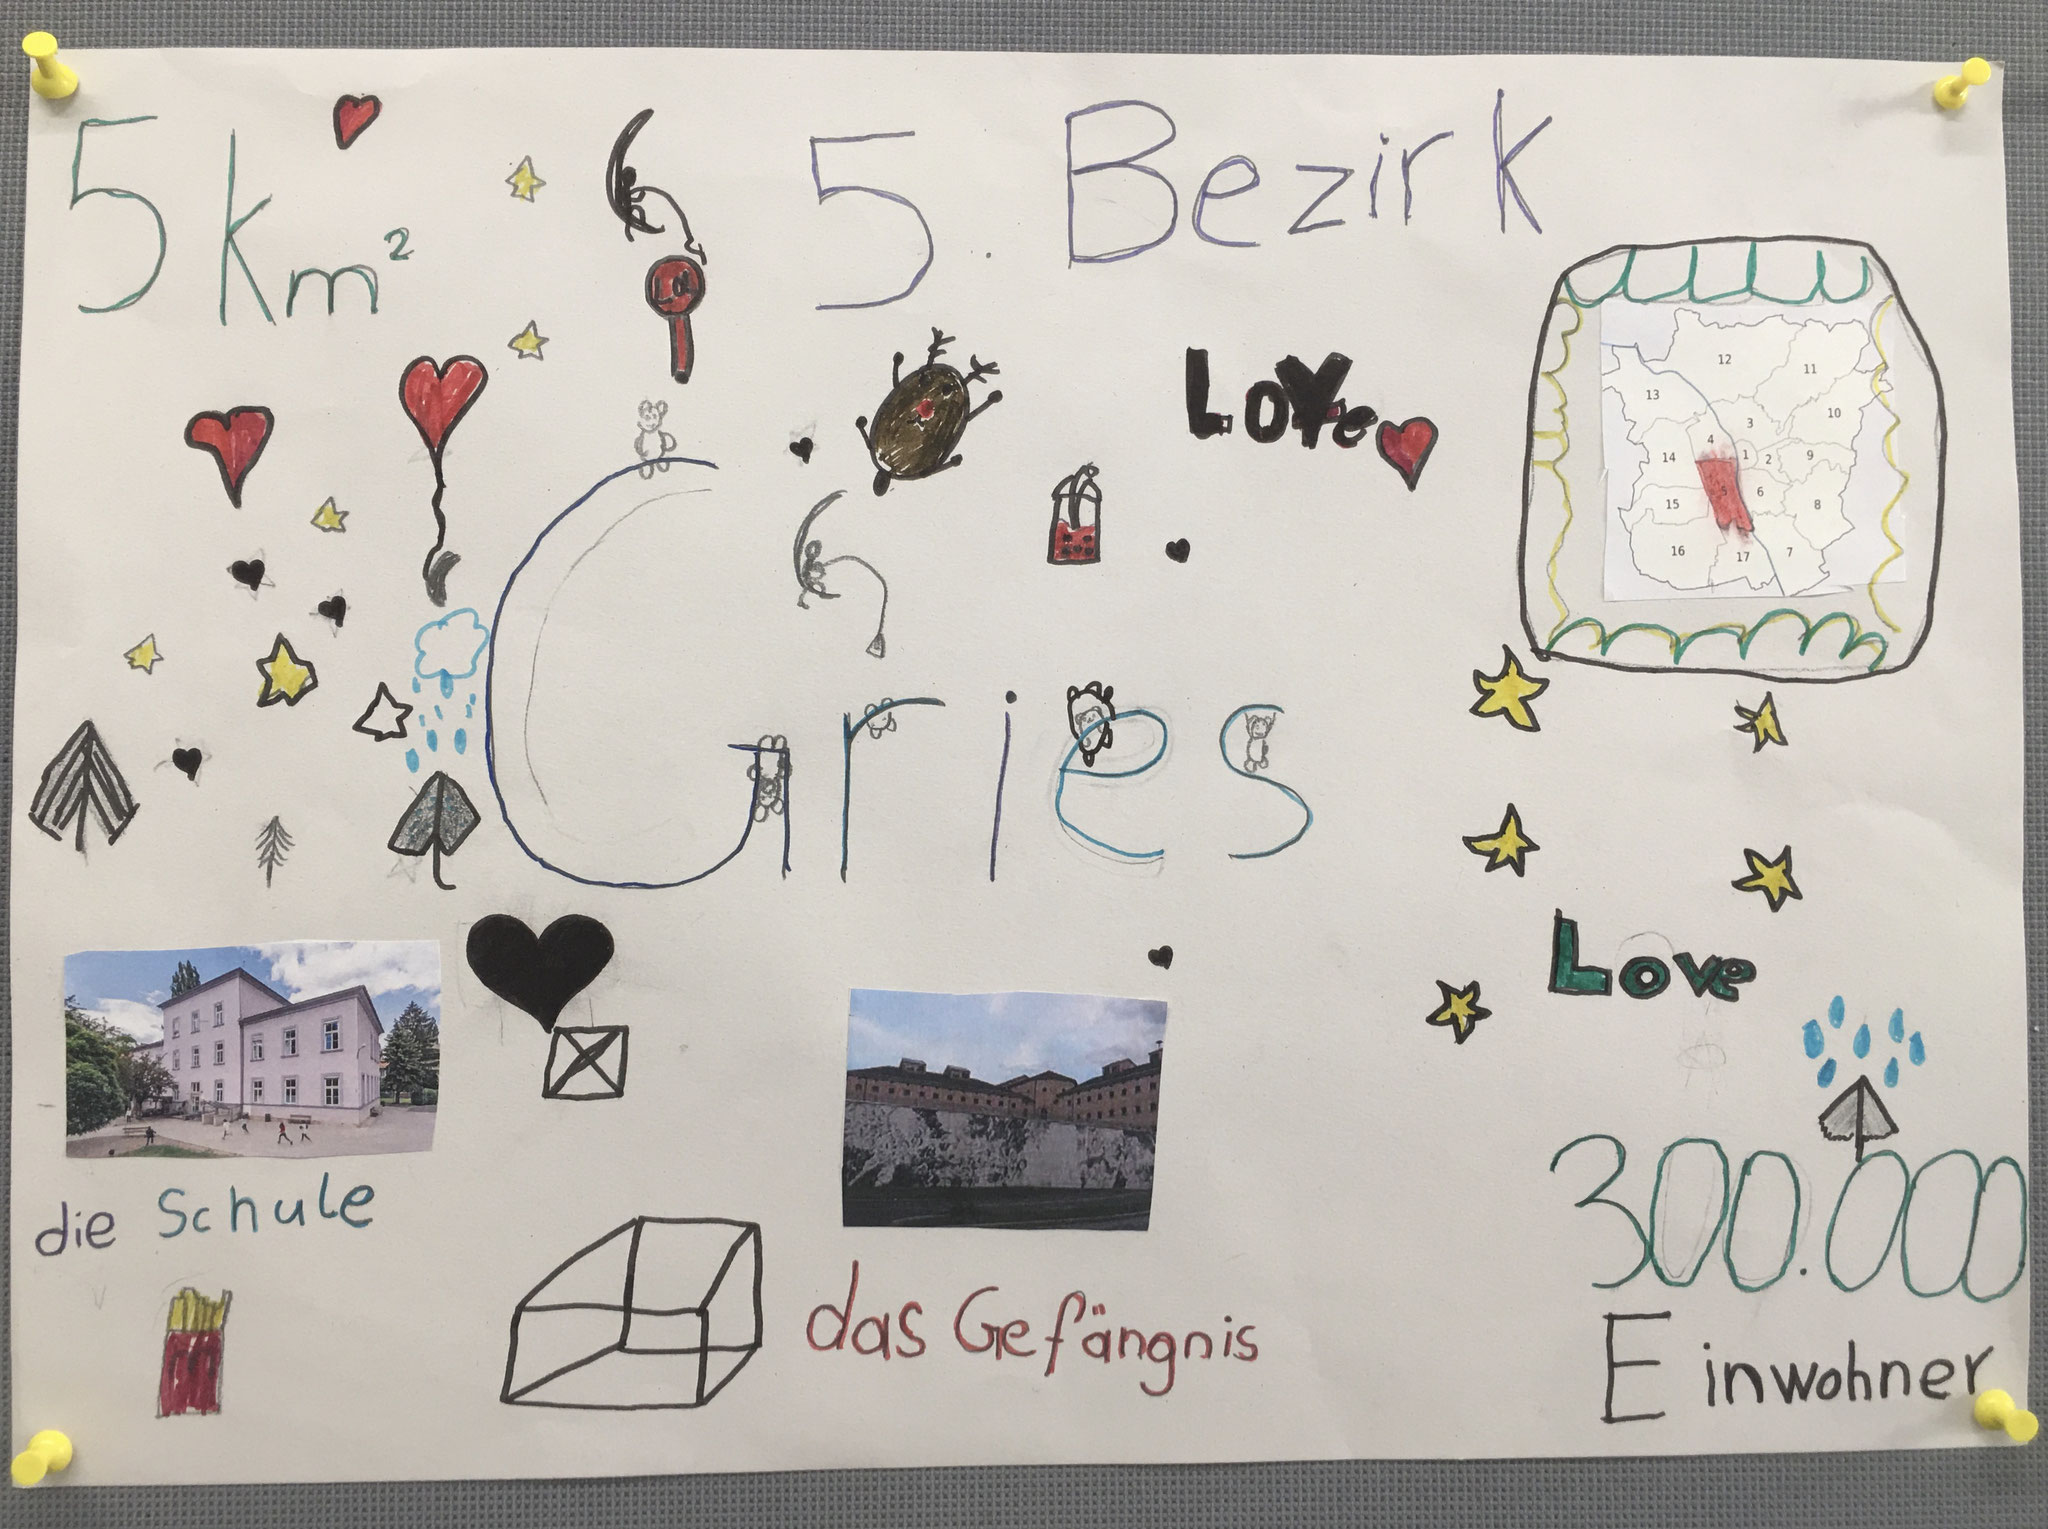 5 km²
5. Bezirk
Love
12
11
13
10
3
4
14
1
2
9
5
6
15
8
16
17
7
Gries
Love
die Schule
das Gefängnis
300.000
Einwohner